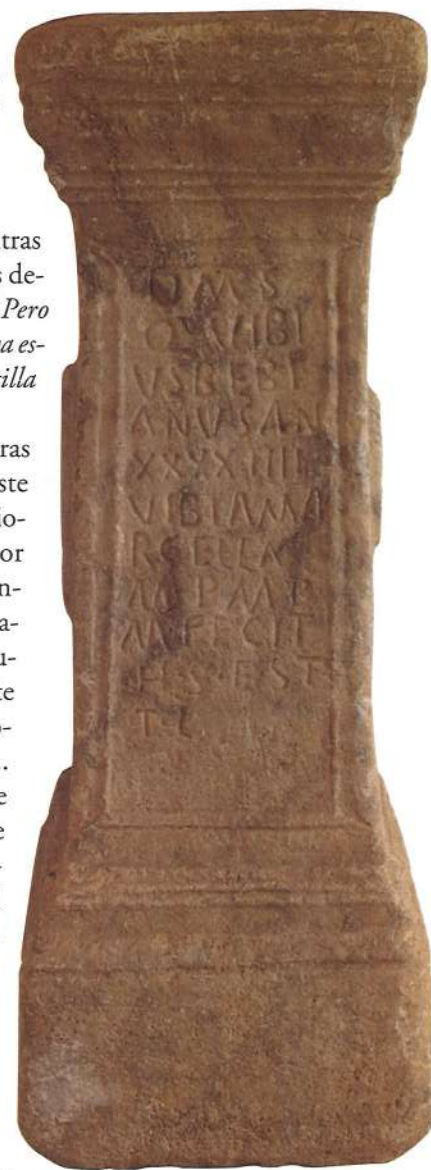 tras
s de-
Pero
va es-
tilla
ras
ste
io-
or
n-
a-
u-
te
o-
.
e
e
D M S
Q VIBI
VSBEBI
ANVSAN
XXXXIIII
VIBIAMA
RCELLA
M P M E
M FECIT
H S EST
T L